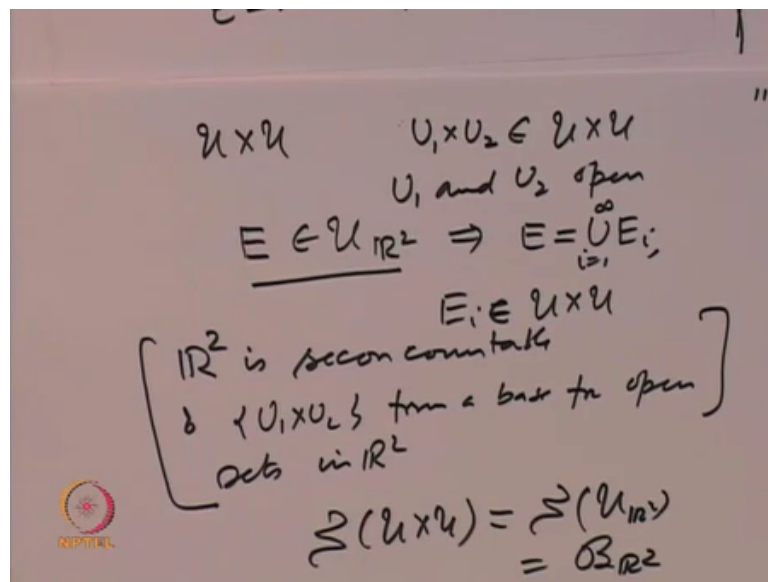 𝒰 × 𝒰 U₁ × U₂ ∈ 𝒰 × 𝒰
U₁ and U₂ open
E ∈ 𝒰_ℝ² ⇒ E = ∪_{i=1}^∞ E_i,
E_i ∈ 𝒰 × 𝒰
[ ℝ² is secon countable
& {U₁ × U₂} from a base for open ]
sets in ℝ²
𝒮(𝒰 × 𝒰) = 𝒮(𝒰_ℝ²)
= ℬ_ℝ²
NPTEL